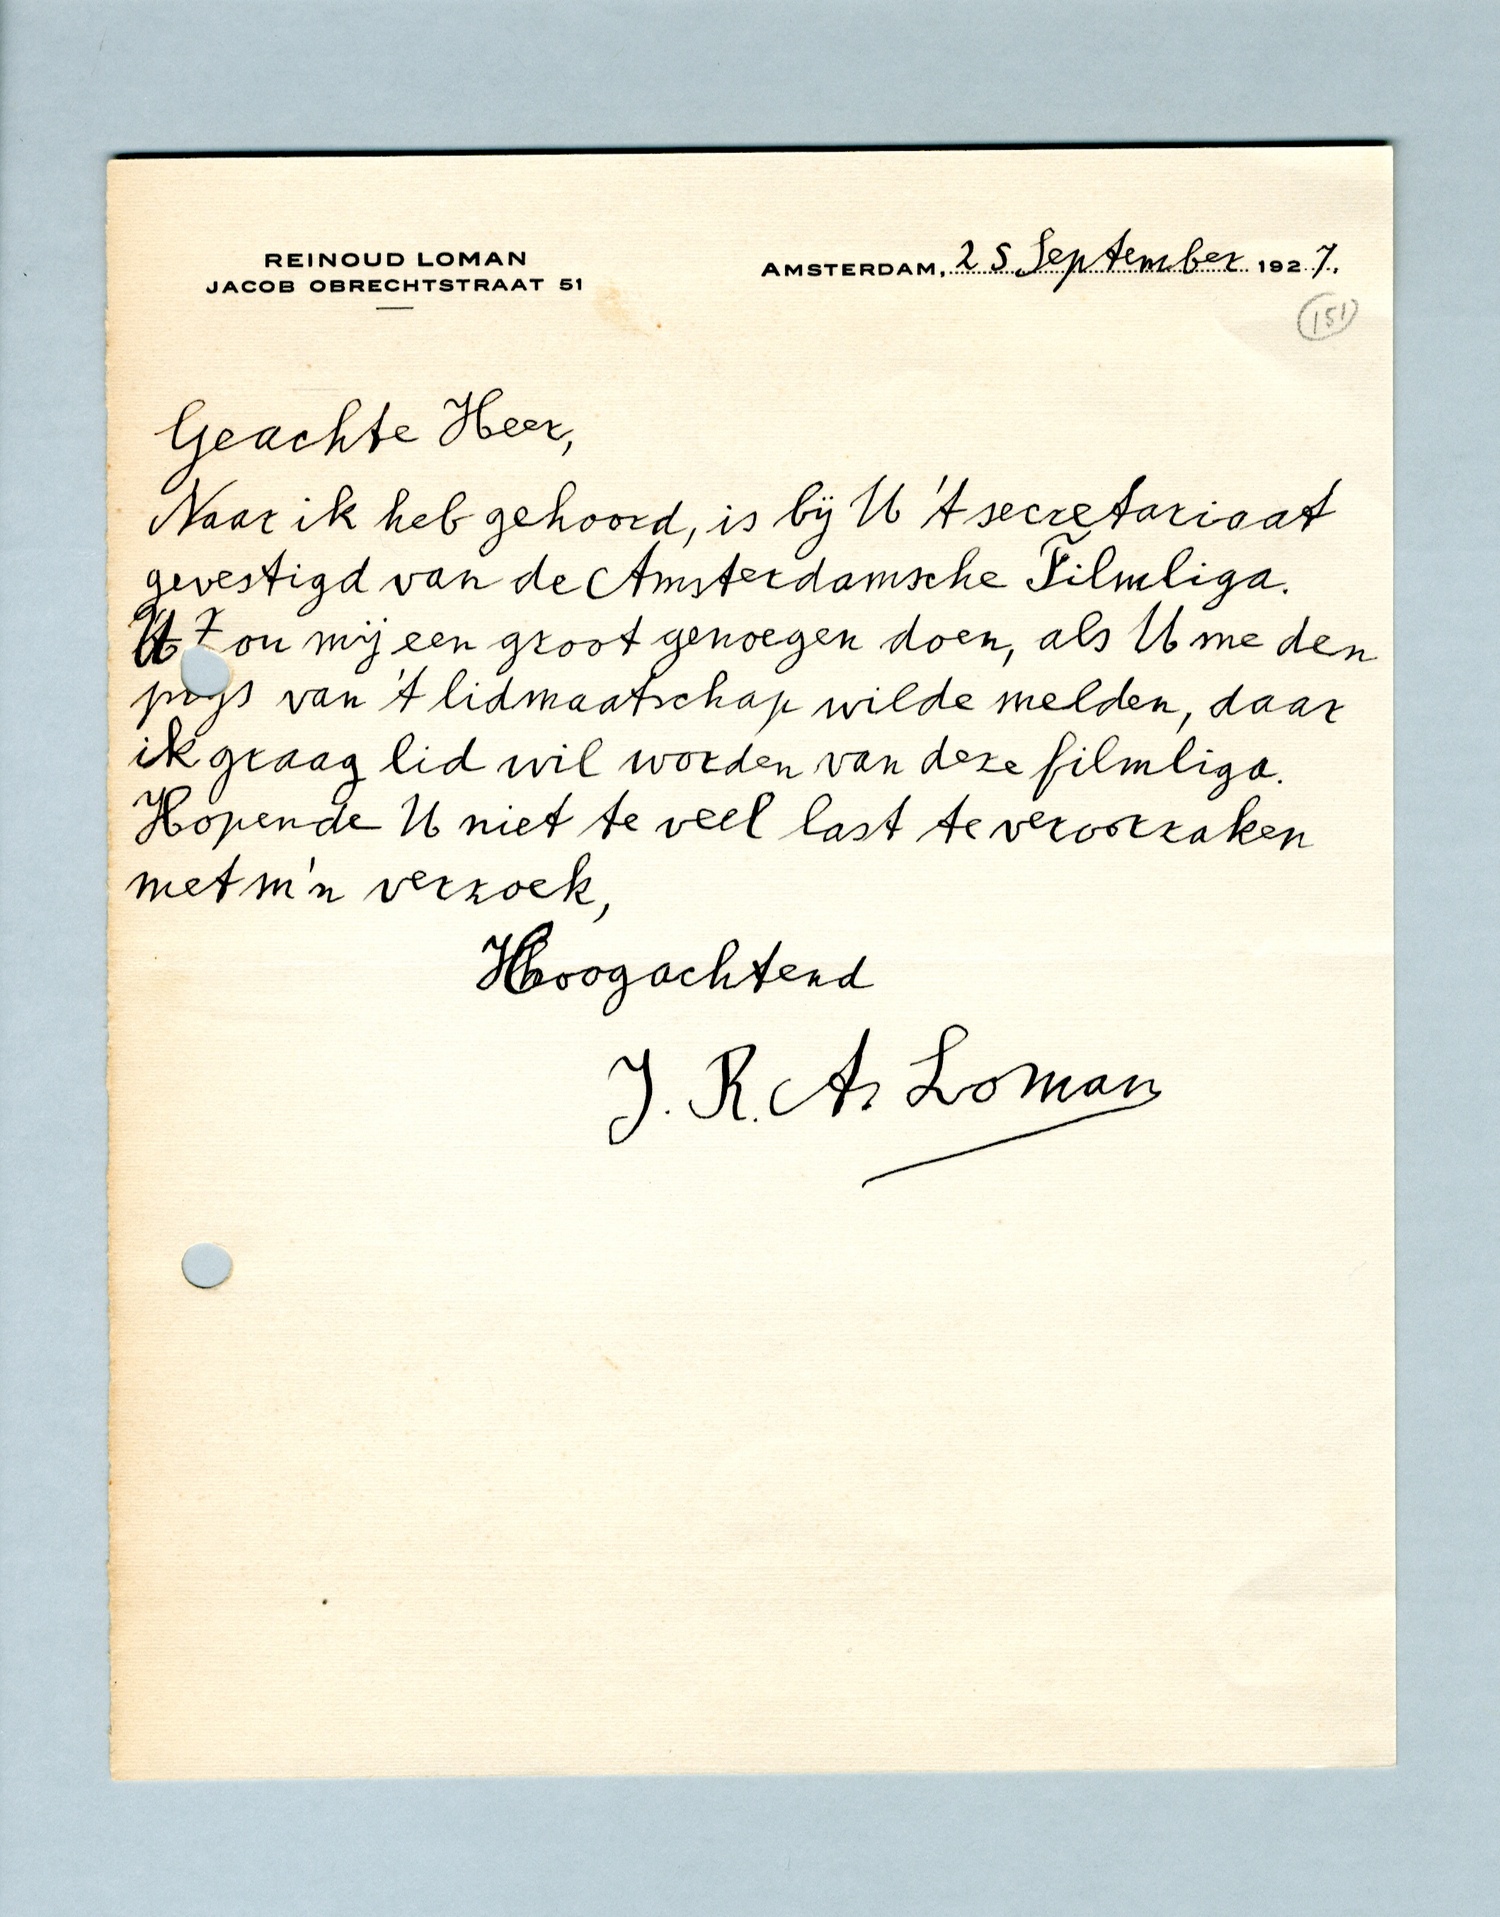 REINOUD LOMAN
JACOB OBRECHTSTRAAT 51
AMSTERDAM, 25 September 1927.
151
Geachte Heer,
Naar ik heb gehoord, is bij U 't secretariaat
gevestigd van de Amsterdamsche Filmliga.
't Zou mij een groot genoegen doen, als U me den
prijs van 't lidmaatschap wilde melden, daar
ik graag lid wil worden van deze filmliga.
Hopende U niet te veel last te veroorzaken
met m'n verzoek,
Hoogachtend
J. R. A. Loman